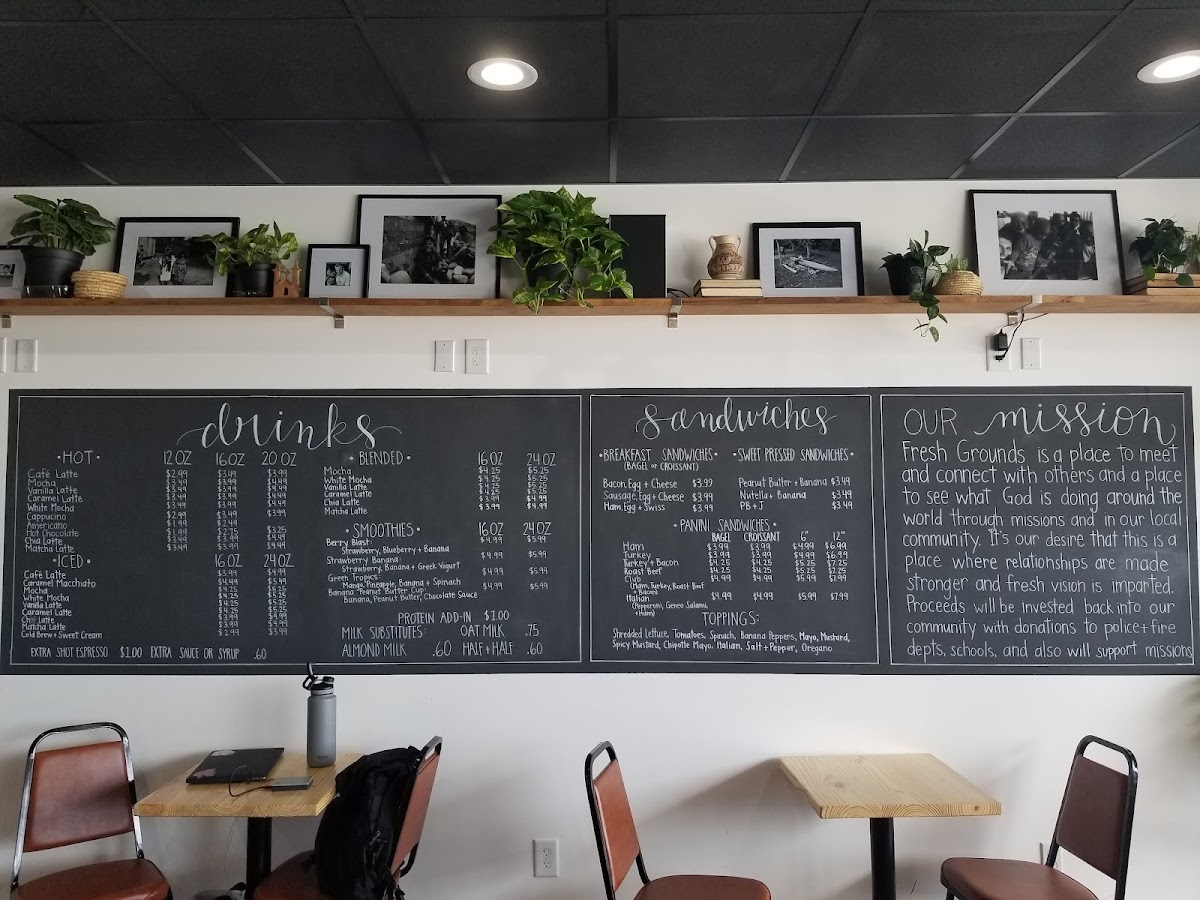 drinks
• HOT • 12 OZ 16 OZ 20 OZ
Café Latte $2.99 $3.49 $3.99
Mocha
Vanilla Latte
Caramel Latte
White Mocha
Cappucino
Americano $1.99 $2.49
Hot Chocolate
Chia Latte
Matcha Latte $3.49
• ICED • 16 OZ 24 OZ
Café Latte $3.99 $4.99
Caramel Macchiato
Mocha
White Mocha
Vanilla Latte
Caramel Latte
Chai Latte
Matcha Latte
Cold Brew + Sweet Cream $2.99 $3.99
EXTRA SHOT ESPRESSO $1.00 EXTRA SAUCE OR SYRUP .60
• BLENDED • 16 OZ 24 OZ
Mocha $4.25 $5.25
White Mocha $4.25 $5.25
Vanilla Latte $4.25 $5.25
Caramel Latte $4.25 $5.25
Chia Latte $3.99 $4.99
Matcha Latte $3.99 $4.99
• SMOOTHIES • 16 OZ 24 OZ
Berry Blast: $4.99 $5.99
Strawberry, Blueberry + Banana
Strawberry Banana: $4.99 $5.99
Strawberry, Banana + Greek Yogurt
Green Tropics: $4.99 $5.99
Mango, Pineapple, Banana + Spinach
Banana Peanut Butter Cup: $4.99 $5.99
Banana, Peanut Butter, Chocolate Sauce
PROTEIN ADD-IN $1.00
MILK SUBSTITUTES: OAT MILK .75
ALMOND MILK .60 HALF + HALF .60
sandwiches
• BREAKFAST SANDWICHES •
(BAGEL or CROISSANT)
Bacon, Egg + Cheese $3.99
Sausage, Egg + Cheese $3.99
Ham, Egg + Swiss $3.99
• SWEET PRESSED SANDWICHES •
Peanut Butter + Banana $3.49
Nutella + Banana $3.49
PB + J $3.49
• PANINI SANDWICHES •
BAGEL CROISSANT 6" 12"
Ham $3.99 $3.99 $4.99 $6.99
Turkey $3.99 $3.99 $4.99 $6.99
Turkey + Bacon $4.25 $4.25 $5.25 $7.25
Roast Beef $4.25 $4.25 $5.25
Club $4.99 $4.99 $5.99 $7.99
(Ham, Turkey, Roast Beef
+ Bacon)
Italian $4.99 $4.99 $5.99 $7.99
(Pepperoni, Genoa Salami,
+ Ham)
TOPPINGS:
Shredded Lettuce, Tomatoes, Spinach, Banana Peppers, Mayo, Mustard,
Spicy Mustard, Chipotle Mayo, Italian, Salt + Pepper, Oregano
OUR mission
Fresh Grounds is a place to meet
and connect with others and a place
to see what God is doing around the
world through missions and in our local
community. It's our desire that this is a
place where relationships are made
stronger and fresh vision is imparted.
Proceeds will be invested back into our
community with donations to police + fire
depts, schools, and also will support missions